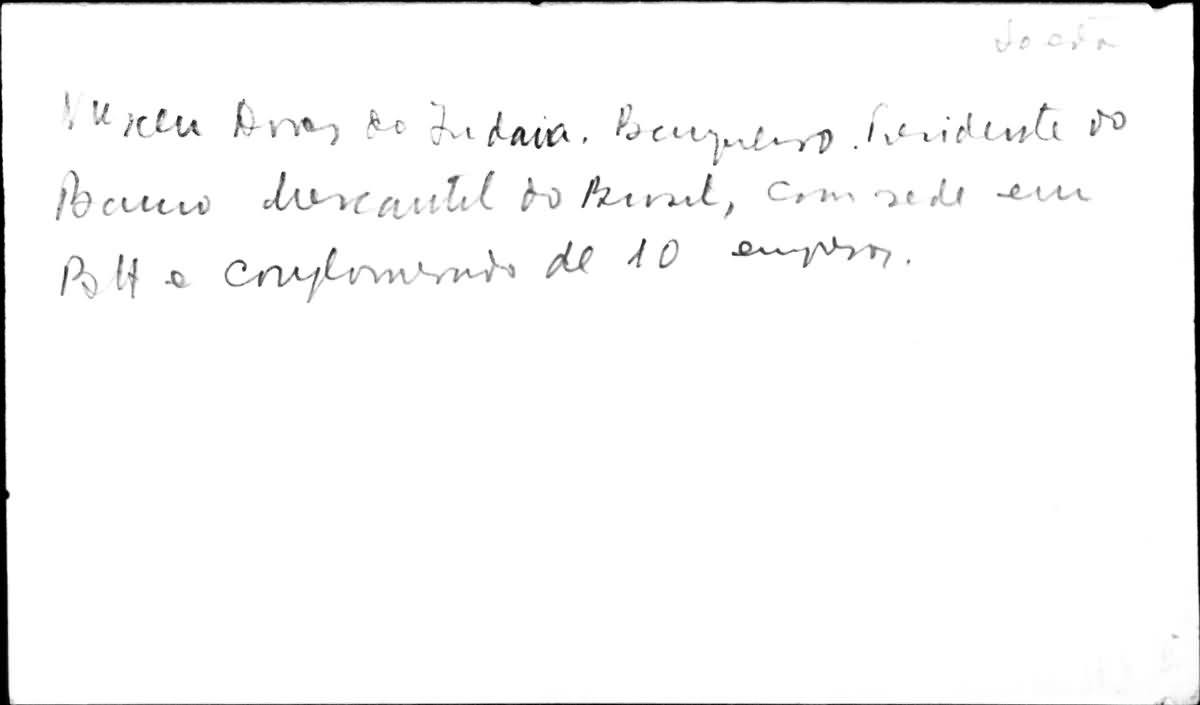 Nasceu Dores do Indaia. Banqueiro. Presidente do
Banco Mercantil do Brasil, com sede em
BH e conglomerado de 10 empresas.